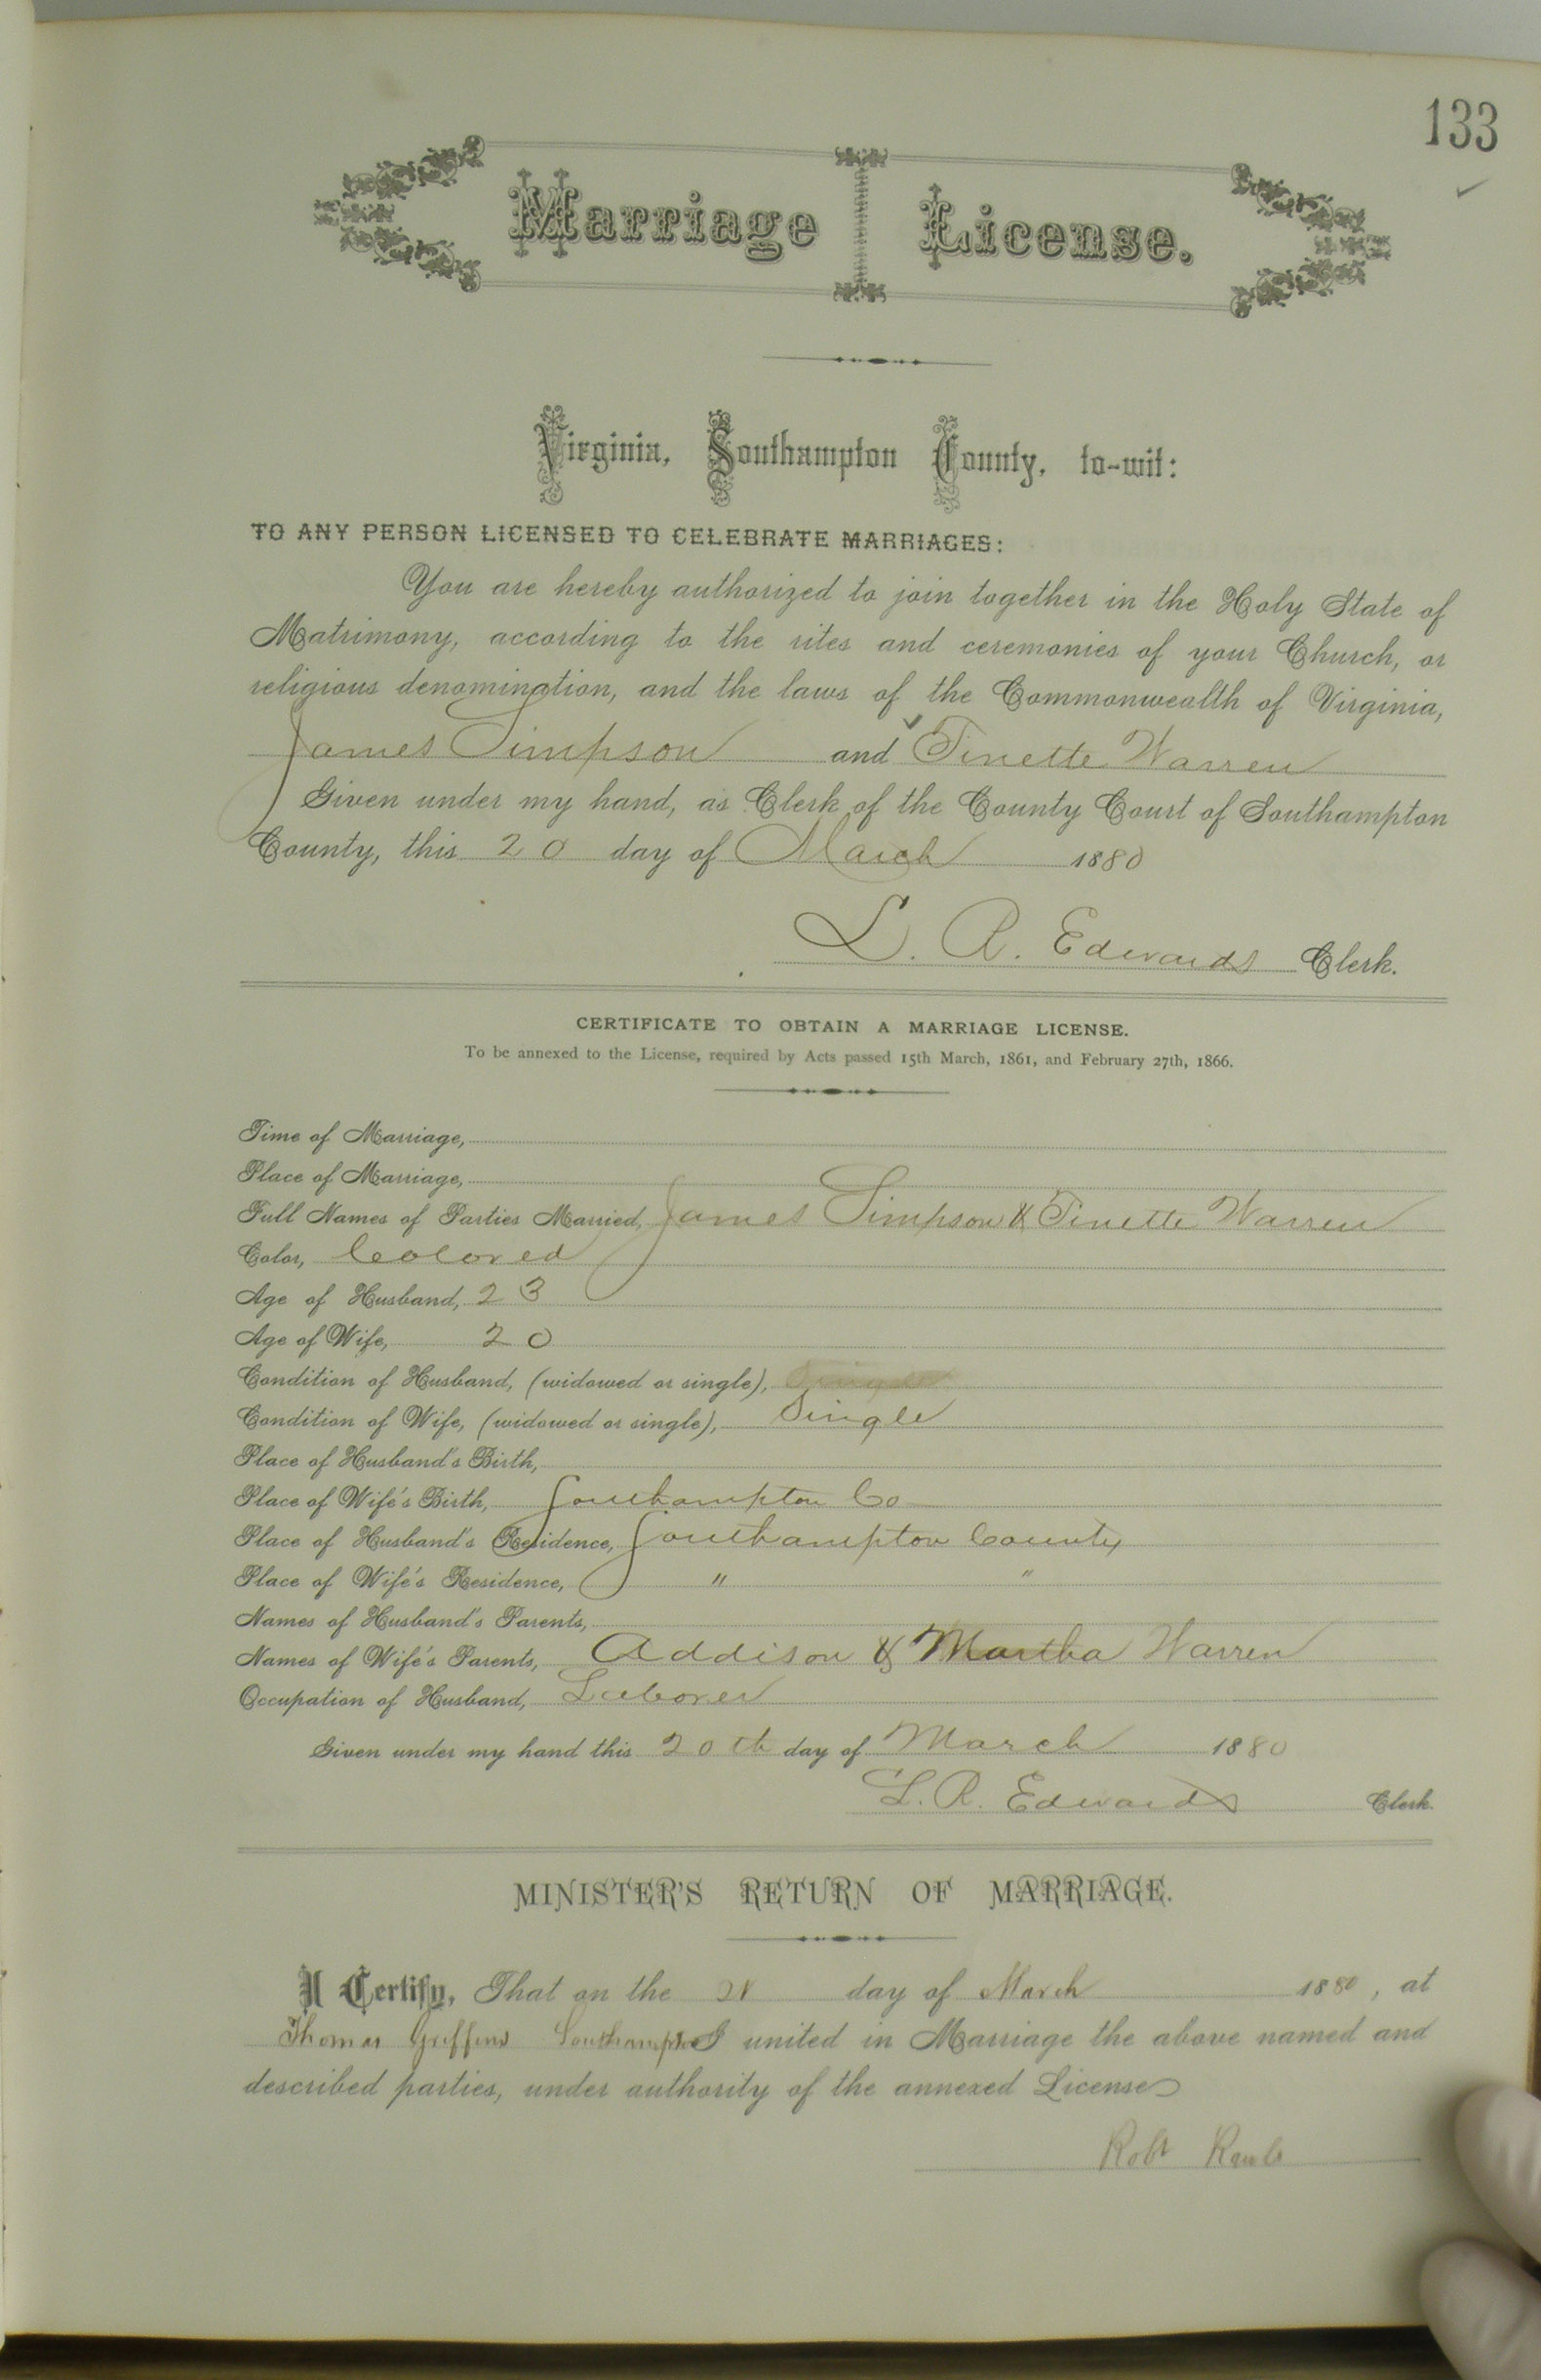 133
Marriage License.
Virginia, Southampton County, to-wit:
TO ANY PERSON LICENSED TO CELEBRATE MARRIAGES:
You are hereby authorized to join together in the Holy State of
Matrimony, according to the rites and ceremonies of your Church, or
religious denomination, and the laws of the Commonwealth of Virginia,
James Simpson and Tinette Warren
Given under my hand, as Clerk of the County Court of Southampton
County, this 20 day of March 1880
L. R. Edwards Clerk.
CERTIFICATE TO OBTAIN A MARRIAGE LICENSE.
To be annexed to the License, required by Acts passed 15th March, 1861, and February 27th, 1866.
Time of Marriage,
Place of Marriage,
Full Names of Parties Married, James Simpson & Tinette Warren
Color, Colored
Age of Husband, 23
Age of Wife, 20
Condition of Husband, (widowed or single), Single
Condition of Wife, (widowed or single), Single
Place of Husband's Birth,
Place of Wife's Birth, Southampton Co
Place of Husband's Residence, Southampton County
Place of Wife's Residence, " "
Names of Husband's Parents,
Names of Wife's Parents, Addison & Martha Warren
Occupation of Husband, Laborer
Given under my hand this 20th day of March 1880
L. R. Edwards Clerk.
MINISTER'S RETURN OF MARRIAGE.
I Certify, That on the day of March 1880, at
Thomas Griffins Southampton I united in Marriage the above named and
described parties, under authority of the annexed License
Robt Rawls